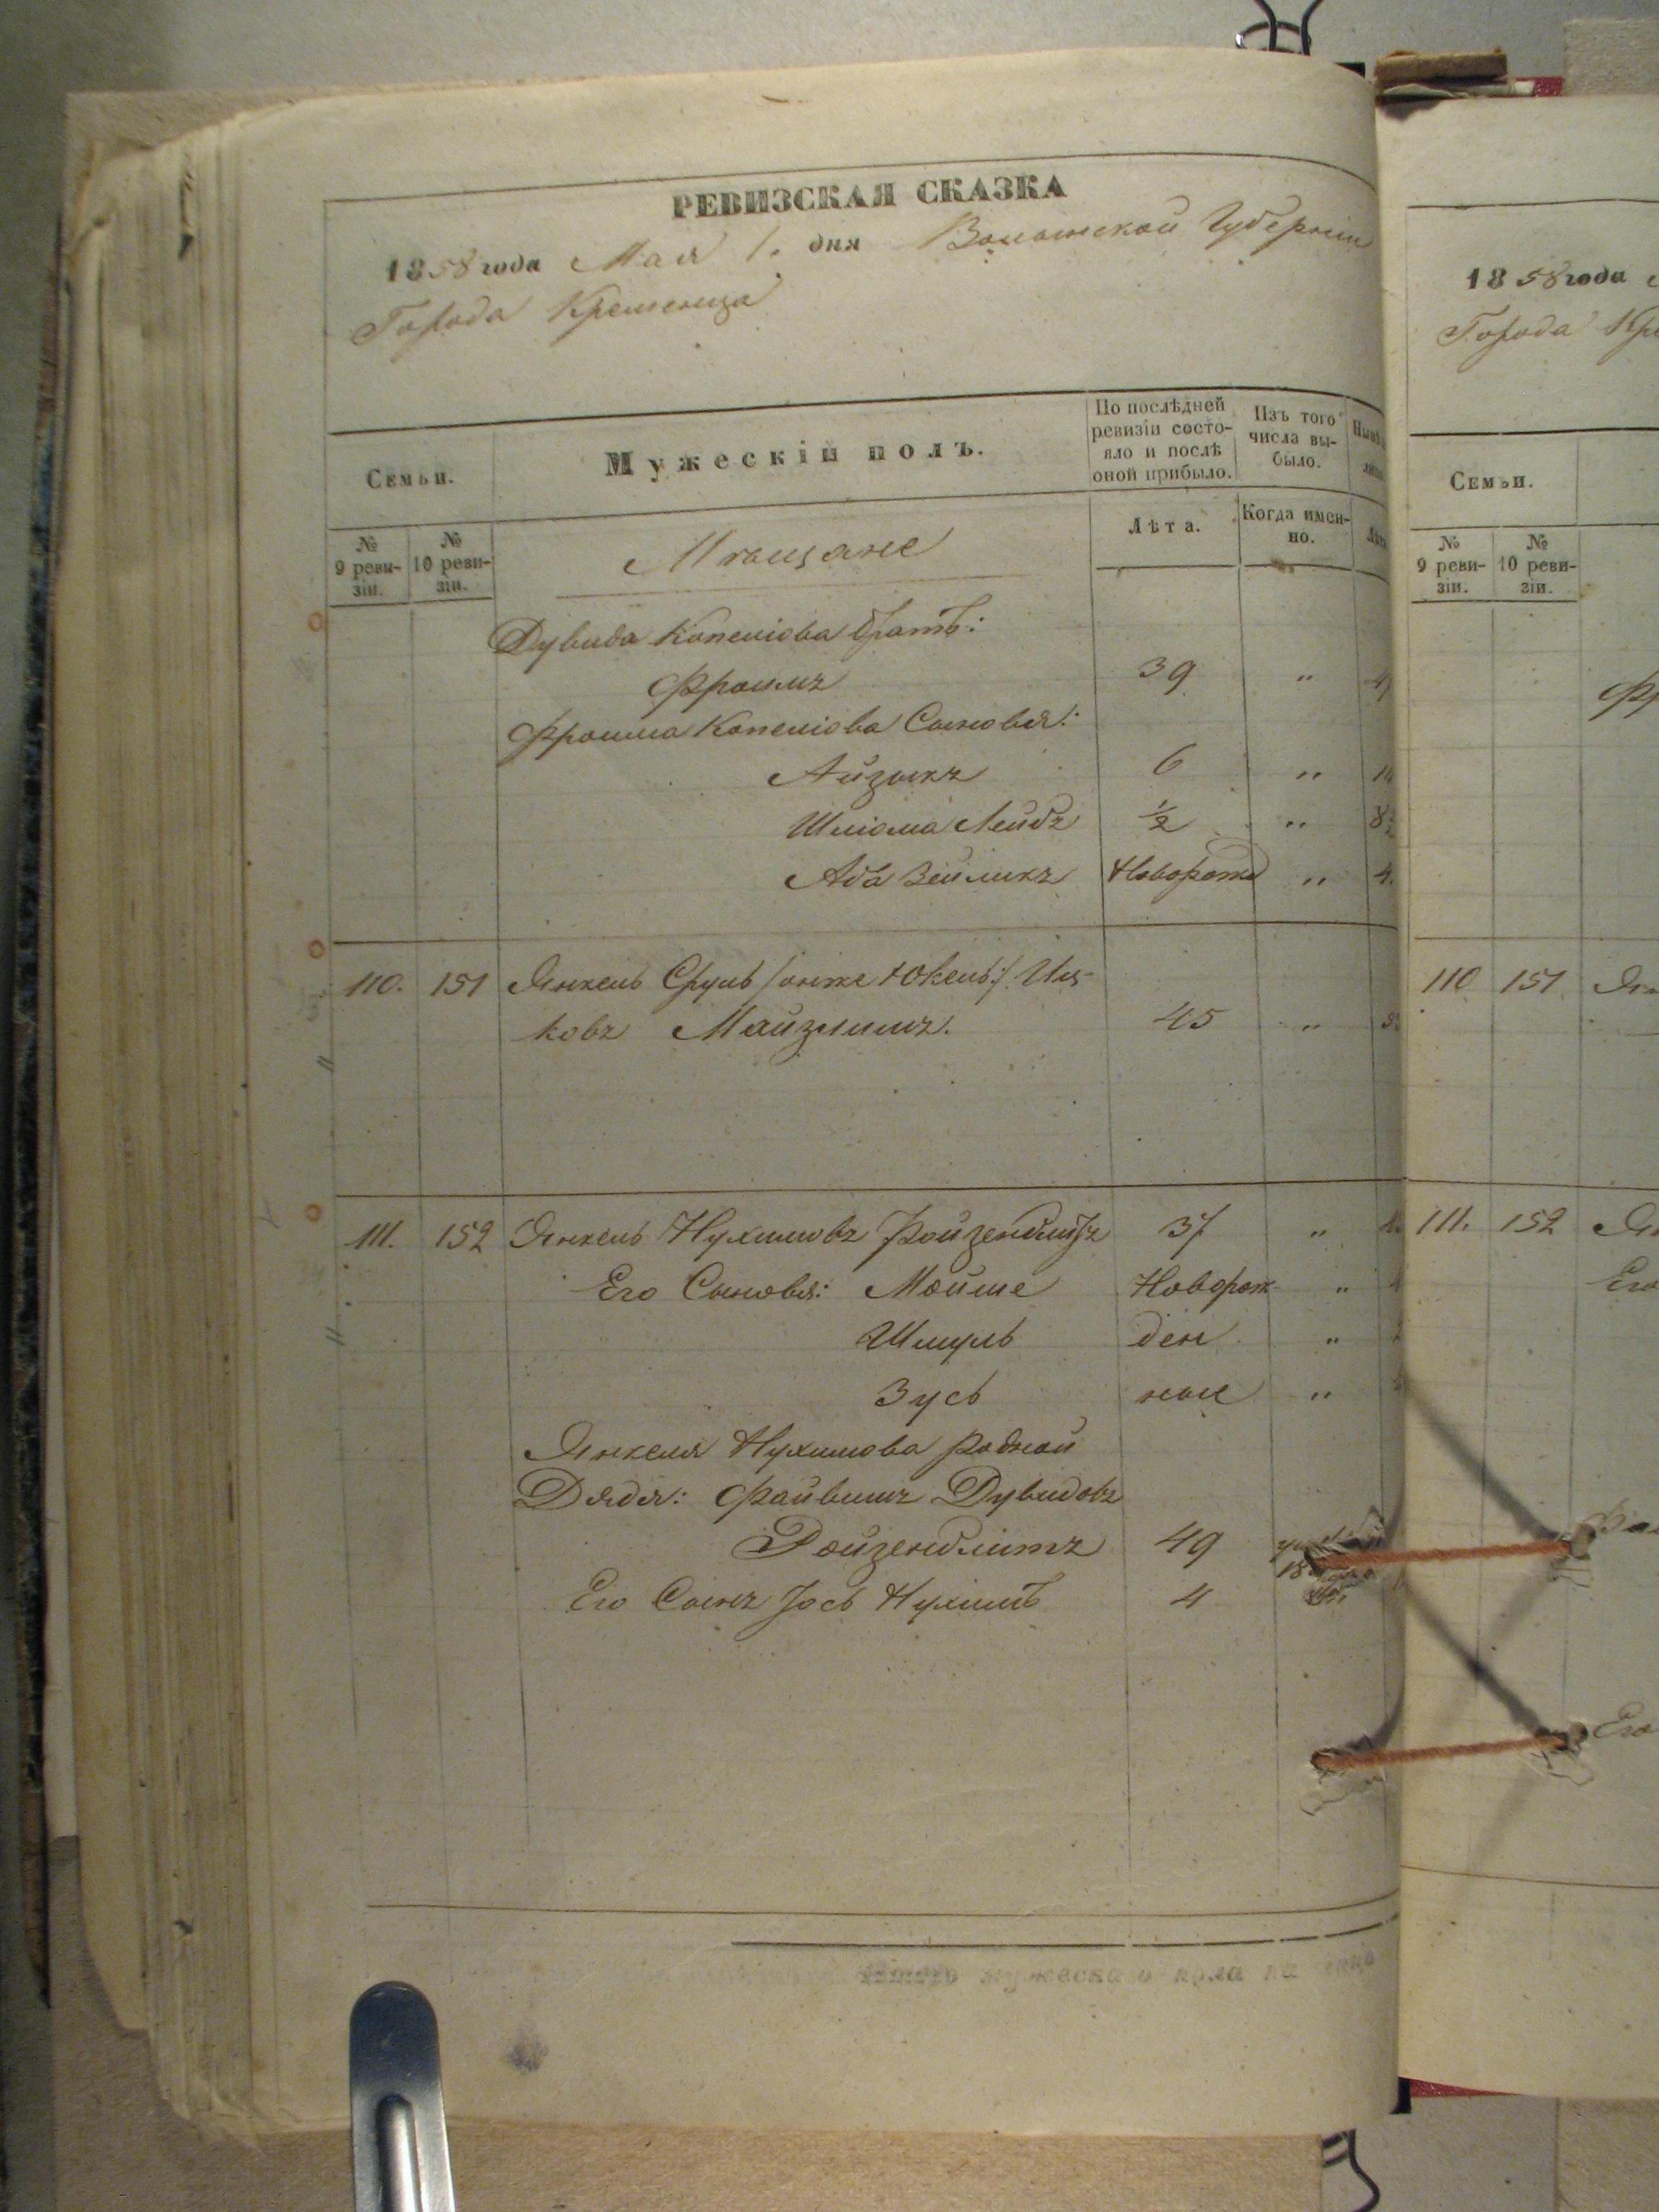 РЕВИЗСКАЯ СКАЗКА
1858 года Мая 1. дня Волынской Губерніи
Города Кременца
Семьи.
Мужескій полъ.
По послѣдней ревизіи состо-
яло и послѣ
оной прибыло.
Изъ того
числа вы-
было.
№
9 реви-
зіи.
№
10 реви-
зіи.
Мѣщане
Лѣта.
Когда имен-
но.
Дувида Копеліова братъ:
Фроимъ 39 "
Фроима Копеліова Сыновья:
Айзыкъ 6 "
Шліома Лейбъ ½ "
Аба Зейликъ Новорожд "
110. 151 Янкель Сруль /: онже Юкель :/ Иц-
ковъ Майзлишъ. 45 "
111. 152 Янкель Нухимовъ Ройзенблитъ 37 "
Его Сыновья: Мойше Новорож- "
Шмуль ден "
Зусь ные "
Янкеля Нухимова родной
Дядя: Файвишъ Дувидовъ
Ройзенблитъ 49
Его Сынъ Іось Нухимъ 4
1858 года
Города
Семьи.
№
9 реви-
зіи.
№
10 реви-
зіи.
110 151
111. 152
Его
Его